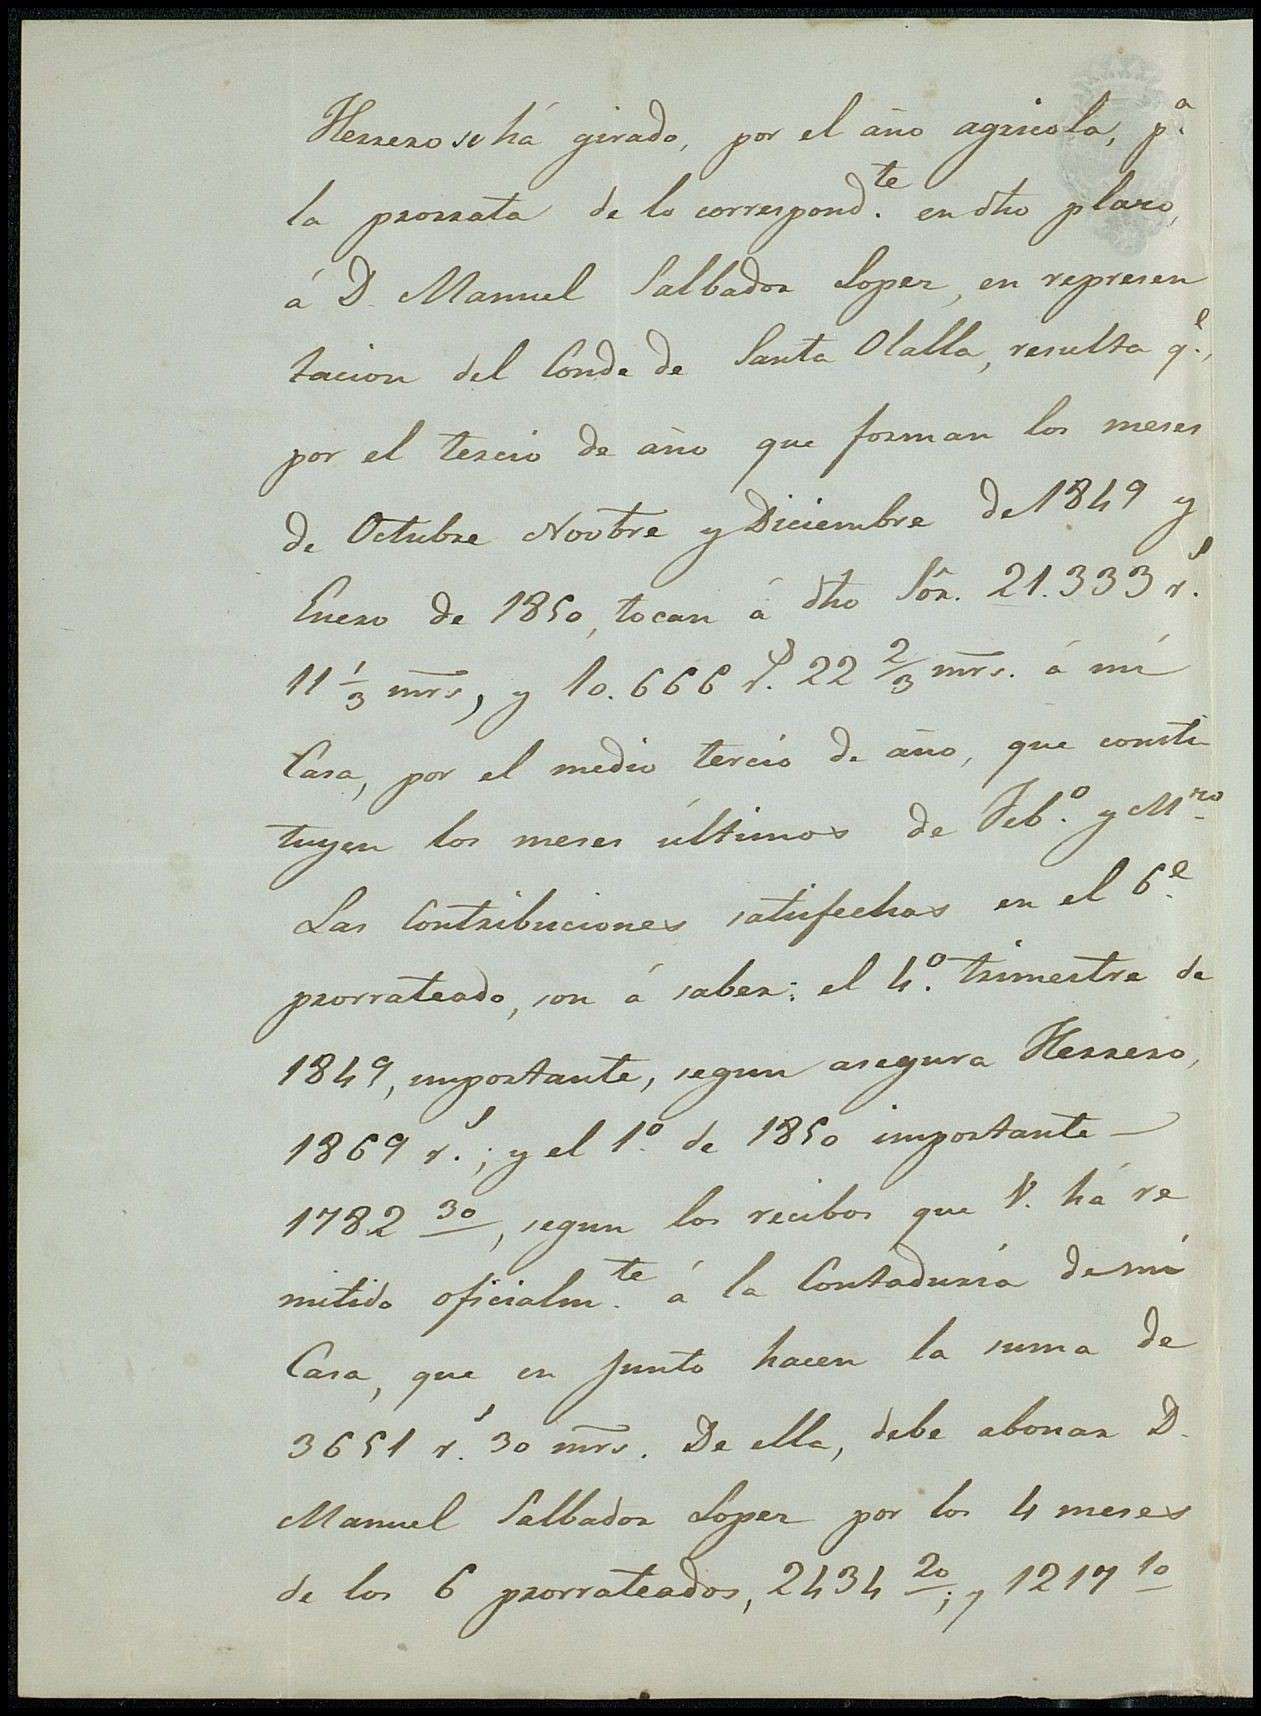 Herrero se há girado, por el año agricola, p.ª
la prorrata de lo correspond.te en dho plazo,
á D. Manuel Salbador Lopez, en represen
tacion del Conde de Santa Olalla, resulta q.e,
por el tercio de año que forman los meses
de Octubre Novbre y Diciembre de 1849 y
Enero de 1850, tocan á dho Sôr. 21.333 r.s
11 1/3 mrs, y 10.666 r.s 22 2/3 mrs. á mi
Casa, por el medio tercio de año, que consti
tuyen los meses últimos de Feb.o y Mrzo
Las Contribuciones satisfechas en el 6.e
prorrateado, son á saber: el 4.o trimestre de
1849, importante, segun asegura Herrero,
1869 r.s; y el 1.o de 1850 importante —
1782 30, segun los recibos que V. há re
mitido oficialm.te á la Contaduría de mi
Casa, que en junto hacen la suma de
3651 r.s 30 mrs. De ella, debe abonar D.
Manuel Salbador Lopez por los 4 meses
de los 6 prorrateados, 2434 20; y 1217 10